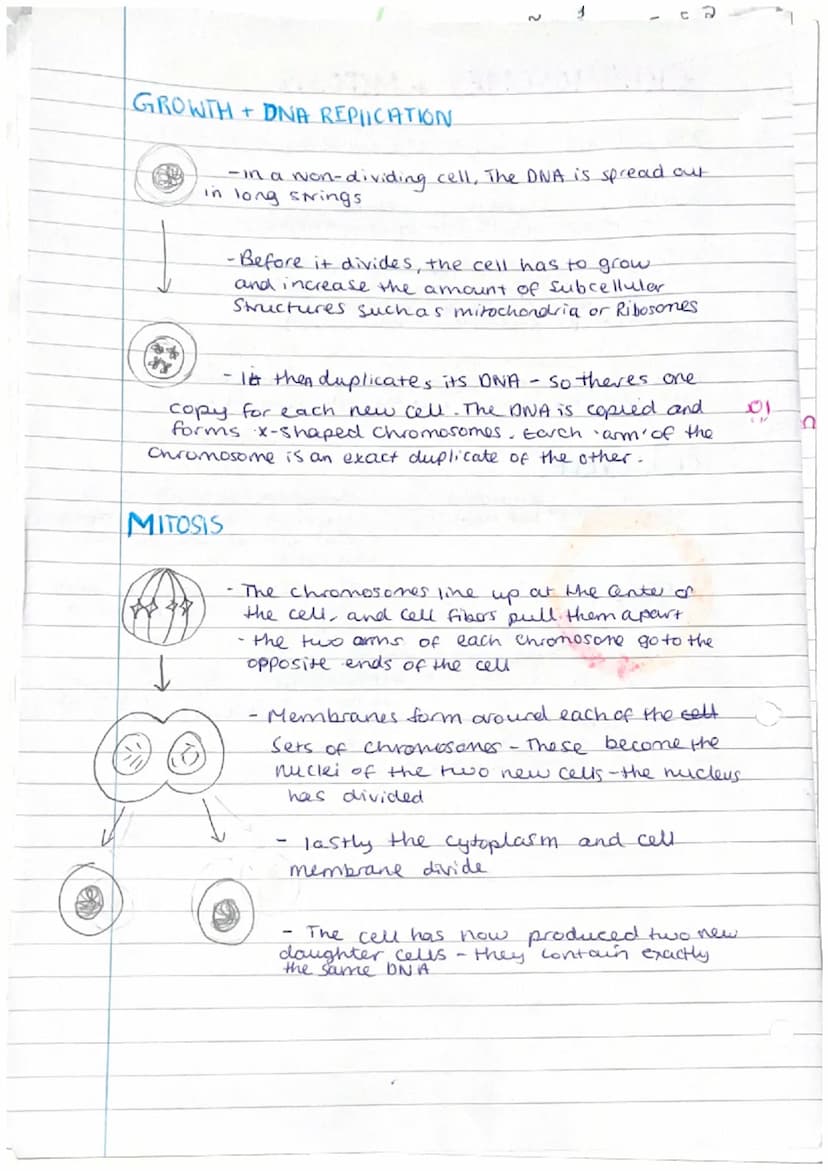 GROWTH + DNA REPLICATION
- In a non-dividing cell, The DNA is spread out
in long strings
- Before it divides, the cell has to grow
and increase the amount of subcellular
structures such as mitochondria or Ribosones
- It then duplicates its DNA - so theres one
copy for each new cell. The DNA is copied and
forms x-shaped chromosomes. Each 'arm' of the
Chromosome is an exact duplicate of the other.
MITOSIS
- The chromosomes line up at the Center of
the cell, and cell fibers pull them apart
- the two arms of each chromosone go to the
opposite ends of the cell
- Membranes form around each of the cell
sets of chromosones - These become the
nuclei of the two new cells - the nucleus
has divided
- lastly the cytoplasm and cell
membrane divide
- The cell has now produced two new
daughter cells - they contain exactly
the same DNA